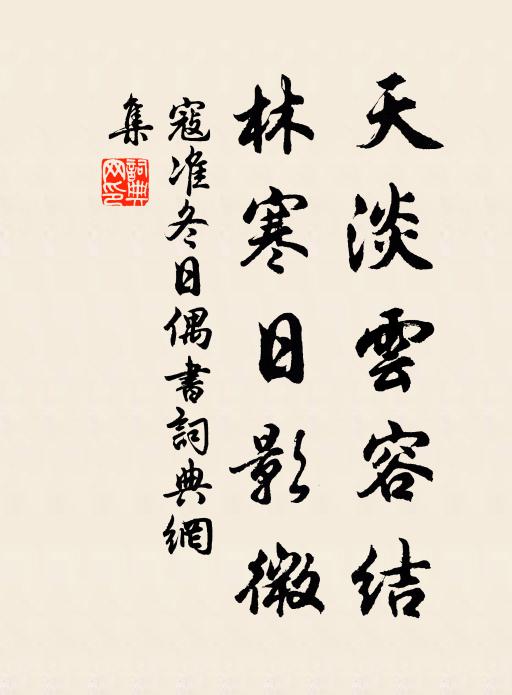 天淡雲容結
林寒日影微
寇准冬日偶書詞典網
集
詞典
网印